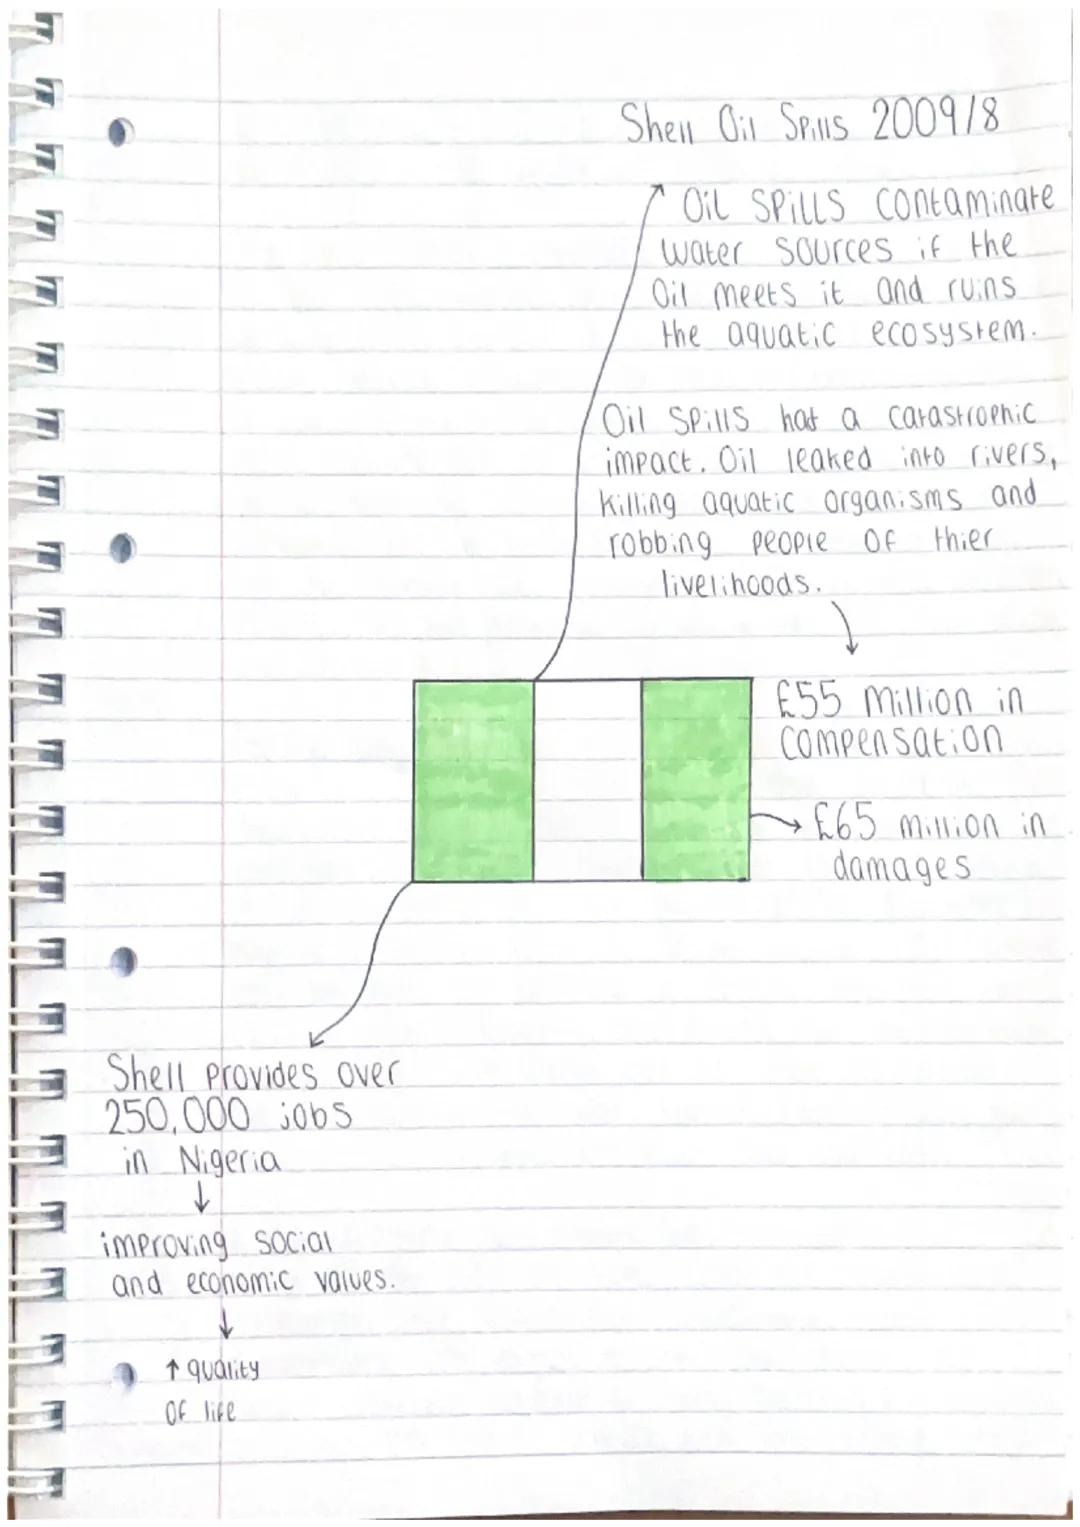 Shell Oil Spills 2009/8
Oil spills contaminate
water sources if the
Oil meets it and ruins
the aquatic ecosystem.
Oil spills had a catastrophic
impact. Oil leaked into rivers,
killing aquatic organisms and
robbing people of thier
livelihoods.
£55 million in
compensation
→ £65 million in
damages
Shell provides over
250,000 jobs
in Nigeria
↓
improving social
and economic values.
↓
↑ quality
of life